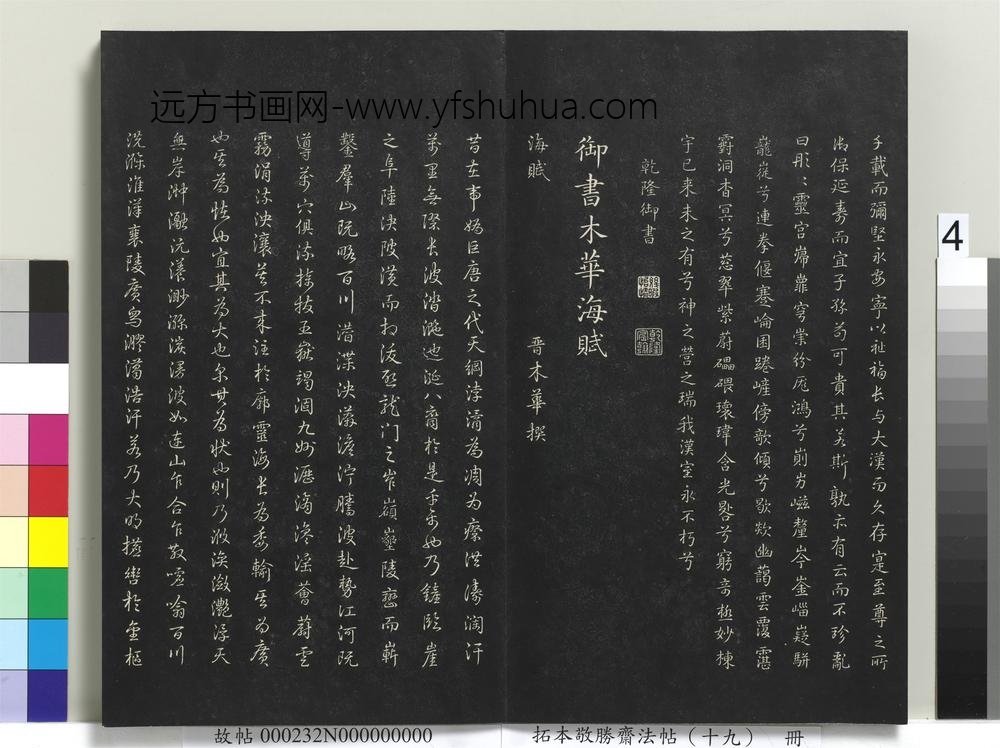 远方书画网-www.yfshuhua.com
千載而彌堅永安寧以祉福长与大漢而久存寔至尊之所
御保延寿而宜子孫苟可貴其若斯孰亦有云而不珍亂
曰彤々靈宫巋嶵穹崇纷厖鴻兮崱屴嵫釐岑崟嵫嶷駢
巃嵸兮連拳偃蹇崘囷踡嵼傍欹傾兮歇欻幽藹雲覆霮
䨴洞杳冥兮葱翠紫蔚礧碨瓌瑋含光晷兮窮奇極妙棟
宇已来未之有兮神之营之瑞我漢室永不朽兮
乾隆御書
御書木華海賦
海賦
晋木華撰
昔在帝媯巨唐之代天綱浡潏為凋为瘵洪濤澜汗
萬里無際长波涾𣶏迆涎八裔於是乎禹也乃鏟臨崖
之阜陸決陂潢而相沷啓龙门之岝嶺墾陵巒而嶄
鑿群山既略百川潛渫泱漭澹泞騰波赴勢江河既
導萬穴俱流掎拔五嶽竭涸九州瀝滴滲淫薈蔚雲
霧涓流泱瀼莫不来注於廓靈海长為委輸其为廣
也其為怪也宜其為大也尔其為状也則乃浟湙瀲灧浮天
無岸沖瀜沆瀁渺㴽湠漫波如连山乍合乍散嘘噏百川
洗滌淮漢襄陵廣舄㶀㵧浩汗若乃大明摭轡於金樞
4
故帖 000232N000000000
拓本敬勝齋法帖（十九） 冊